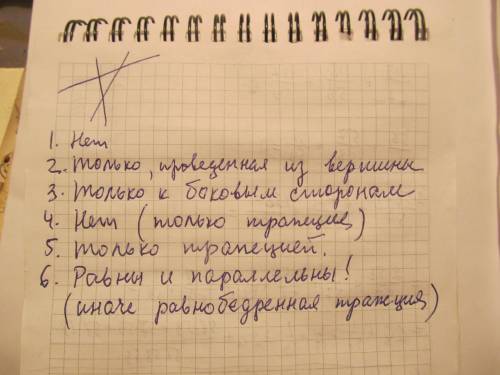 1. Нет
2. только, проведенная из вершины
3. Только к боковым сторонам
4. Нет (только трапеция)
5. только трапецией.
6. Равны и параллельны!
(иначе равнобедренная трапеция)